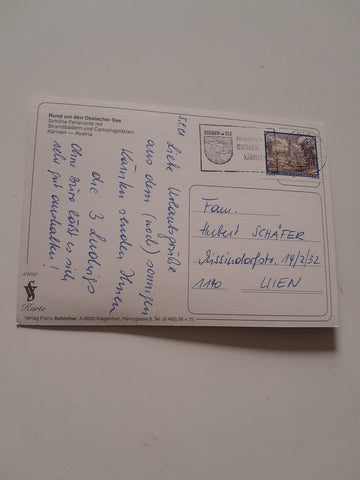 Rund um den Ossiacher See
Schöne Ferienorte mit
Strandbädern und Campingplätzen
Kärnten — Austria
Liebe Urlaubsgrüße
aus dem (noch) sonnigen
Kärnten senden Ihnen
die 3 Ludwigs
Ohne Büro läßt es sich
sehr gut aushalten!
OSSIACH am SEE
Fam.
Hubert SCHÄFER
Missindorfstr. 14/2/32
1140 WIEN
eine
Karte
Verlag Franz Schilcher, A-9020 Klagenfurt, Heinzgasse 6, Tel. (0 463) 56 4 75